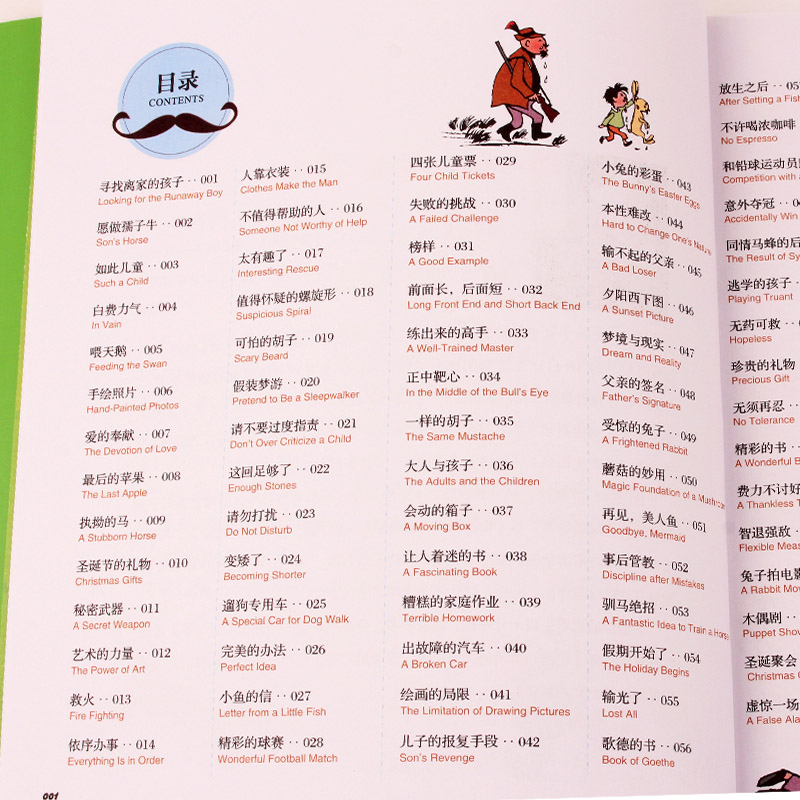 目录
CONTENTS
寻找离家的孩子··001
Looking for the Runaway Boy
愿做孺子牛··002
Son's Horse
如此儿童··003
Such a Child
白费力气··004
In Vain
喂天鹅··005
Feeding the Swan
手绘照片··006
Hand-Painted Photos
爱的奉献··007
The Devotion of Love
最后的苹果··008
The Last Apple
执拗的马··009
A Stubborn Horse
圣诞节的礼物··010
Christmas Gifts
秘密武器··011
A Secret Weapon
艺术的力量··012
The Power of Art
救火··013
Fire Fighting
依序办事··014
Everything Is in Order
人靠衣装··015
Clothes Make the Man
不值得帮助的人··016
Someone Not Worthy of Help
太有趣了··017
Interesting Rescue
值得怀疑的螺旋形··018
Suspicious Spiral
可怕的胡子··019
Scary Beard
假装梦游··020
Pretend to Be a Sleepwalker
请不要过度指责··021
Don't Over Criticize a Child
这回足够了··022
Enough Stones
请勿打扰··023
Do Not Disturb
变矮了··024
Becoming Shorter
遛狗专用车··025
A Special Car for Dog Walk
完美的办法··026
Perfect Idea
小鱼的信··027
Letter from a Little Fish
精彩的球赛··028
Wonderful Football Match
四张儿童票··029
Four Child Tickets
失败的挑战··030
A Failed Challenge
榜样··031
A Good Example
前面长，后面短··032
Long Front End and Short Back End
练出来的高手··033
A Well-Trained Master
正中靶心··034
In the Middle of the Bull's Eye
一样的胡子··035
The Same Mustache
大人与孩子··036
The Adults and the Children
会动的箱子··037
A Moving Box
让人着迷的书··038
A Fascinating Book
糟糕的家庭作业··039
Terrible Homework
出故障的汽车··040
A Broken Car
绘画的局限··041
The Limitation of Drawing Pictures
儿子的报复手段··042
Son's Revenge
小兔的彩蛋··043
The Bunny's Easter Eggs
本性难改··044
Hard to Change One's Nature
输不起的父亲··045
A Bad Loser
夕阳西下图··046
A Sunset Picture
梦境与现实··047
Dream and Reality
父亲的签名··048
Father's Signature
受惊的兔子··049
A Frightened Rabbit
蘑菇的妙用··050
Magic Foundation of a Mushroom
再见，美人鱼··051
Goodbye, Mermaid
事后管教··052
Discipline after Mistakes
驯马绝招··053
A Fantastic Idea to Train a Horse
假期开始了··054
The Holiday Begins
输光了··055
Lost All
歌德的书··056
Book of Goethe
放生之后··05
After Setting a Fish
不许喝浓咖啡
No Espresso
和铅球运动员
Competition with
意外夺冠··
Accidentally Win
同情马蜂的后
The Result of Sy
逃学的孩子
Playing Truant
无药可救··
Hopeless
珍贵的礼物
Precious Gift
无须再忍
No Tolerance
精彩的书··
A Wonderful B
费力不讨好
A Thankless T
智退强敌
Flexible Meas
兔子拍电影
A Rabbit Mov
木偶剧··
Puppet Show
圣诞聚会
Christmas
虚惊一场
A False Ala
001